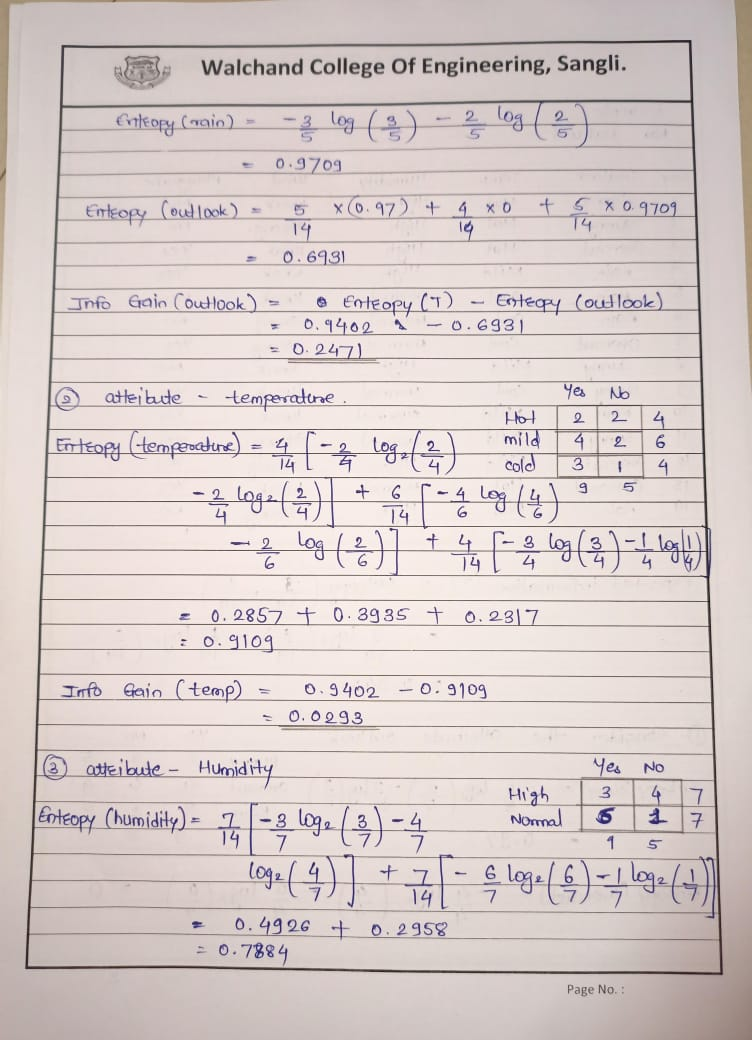 Walchand College Of Engineering, Sangli.
Entropy (rain) = -3/5 log (3/5) - 2/5 log (2/5)
= 0.9709
Entropy (outlook) = 5/14 x (0.97) + 4/14 x 0 + 5/14 x 0.9709
= 0.6931
Info Gain (outlook) = Entropy (T) - Entropy (outlook)
= 0.9402 - 0.6931
= 0.2471
② attribute - temperature.
Yes No
Hot 2 2 4
mild 4 2 6
cold 3 1 4
9 5
Entropy (temperature) = 4/14 [-2/4 log2 (2/4)
-2/4 log2 (2/4)] + 6/14 [-4/6 log (4/6)
-2/6 log (2/6)] + 4/14 [-3/4 log (3/4) -1/4 log(1/4)]
= 0.2857 + 0.3935 + 0.2317
= 0.9109
Info Gain (temp) = 0.9402 - 0.9109
= 0.0293
③ attribute - Humidity
Yes No
High 3 4 7
Normal 6 1 7
9 5
Entropy (humidity) = 7/14 [-3/7 log2 (3/7) - 4/7
log2 (4/7)] + 7/14 [- 6/7 log2 (6/7) -1/7 log2 (1/7)]
= 0.4926 + 0.2958
= 0.7884
Page No. :